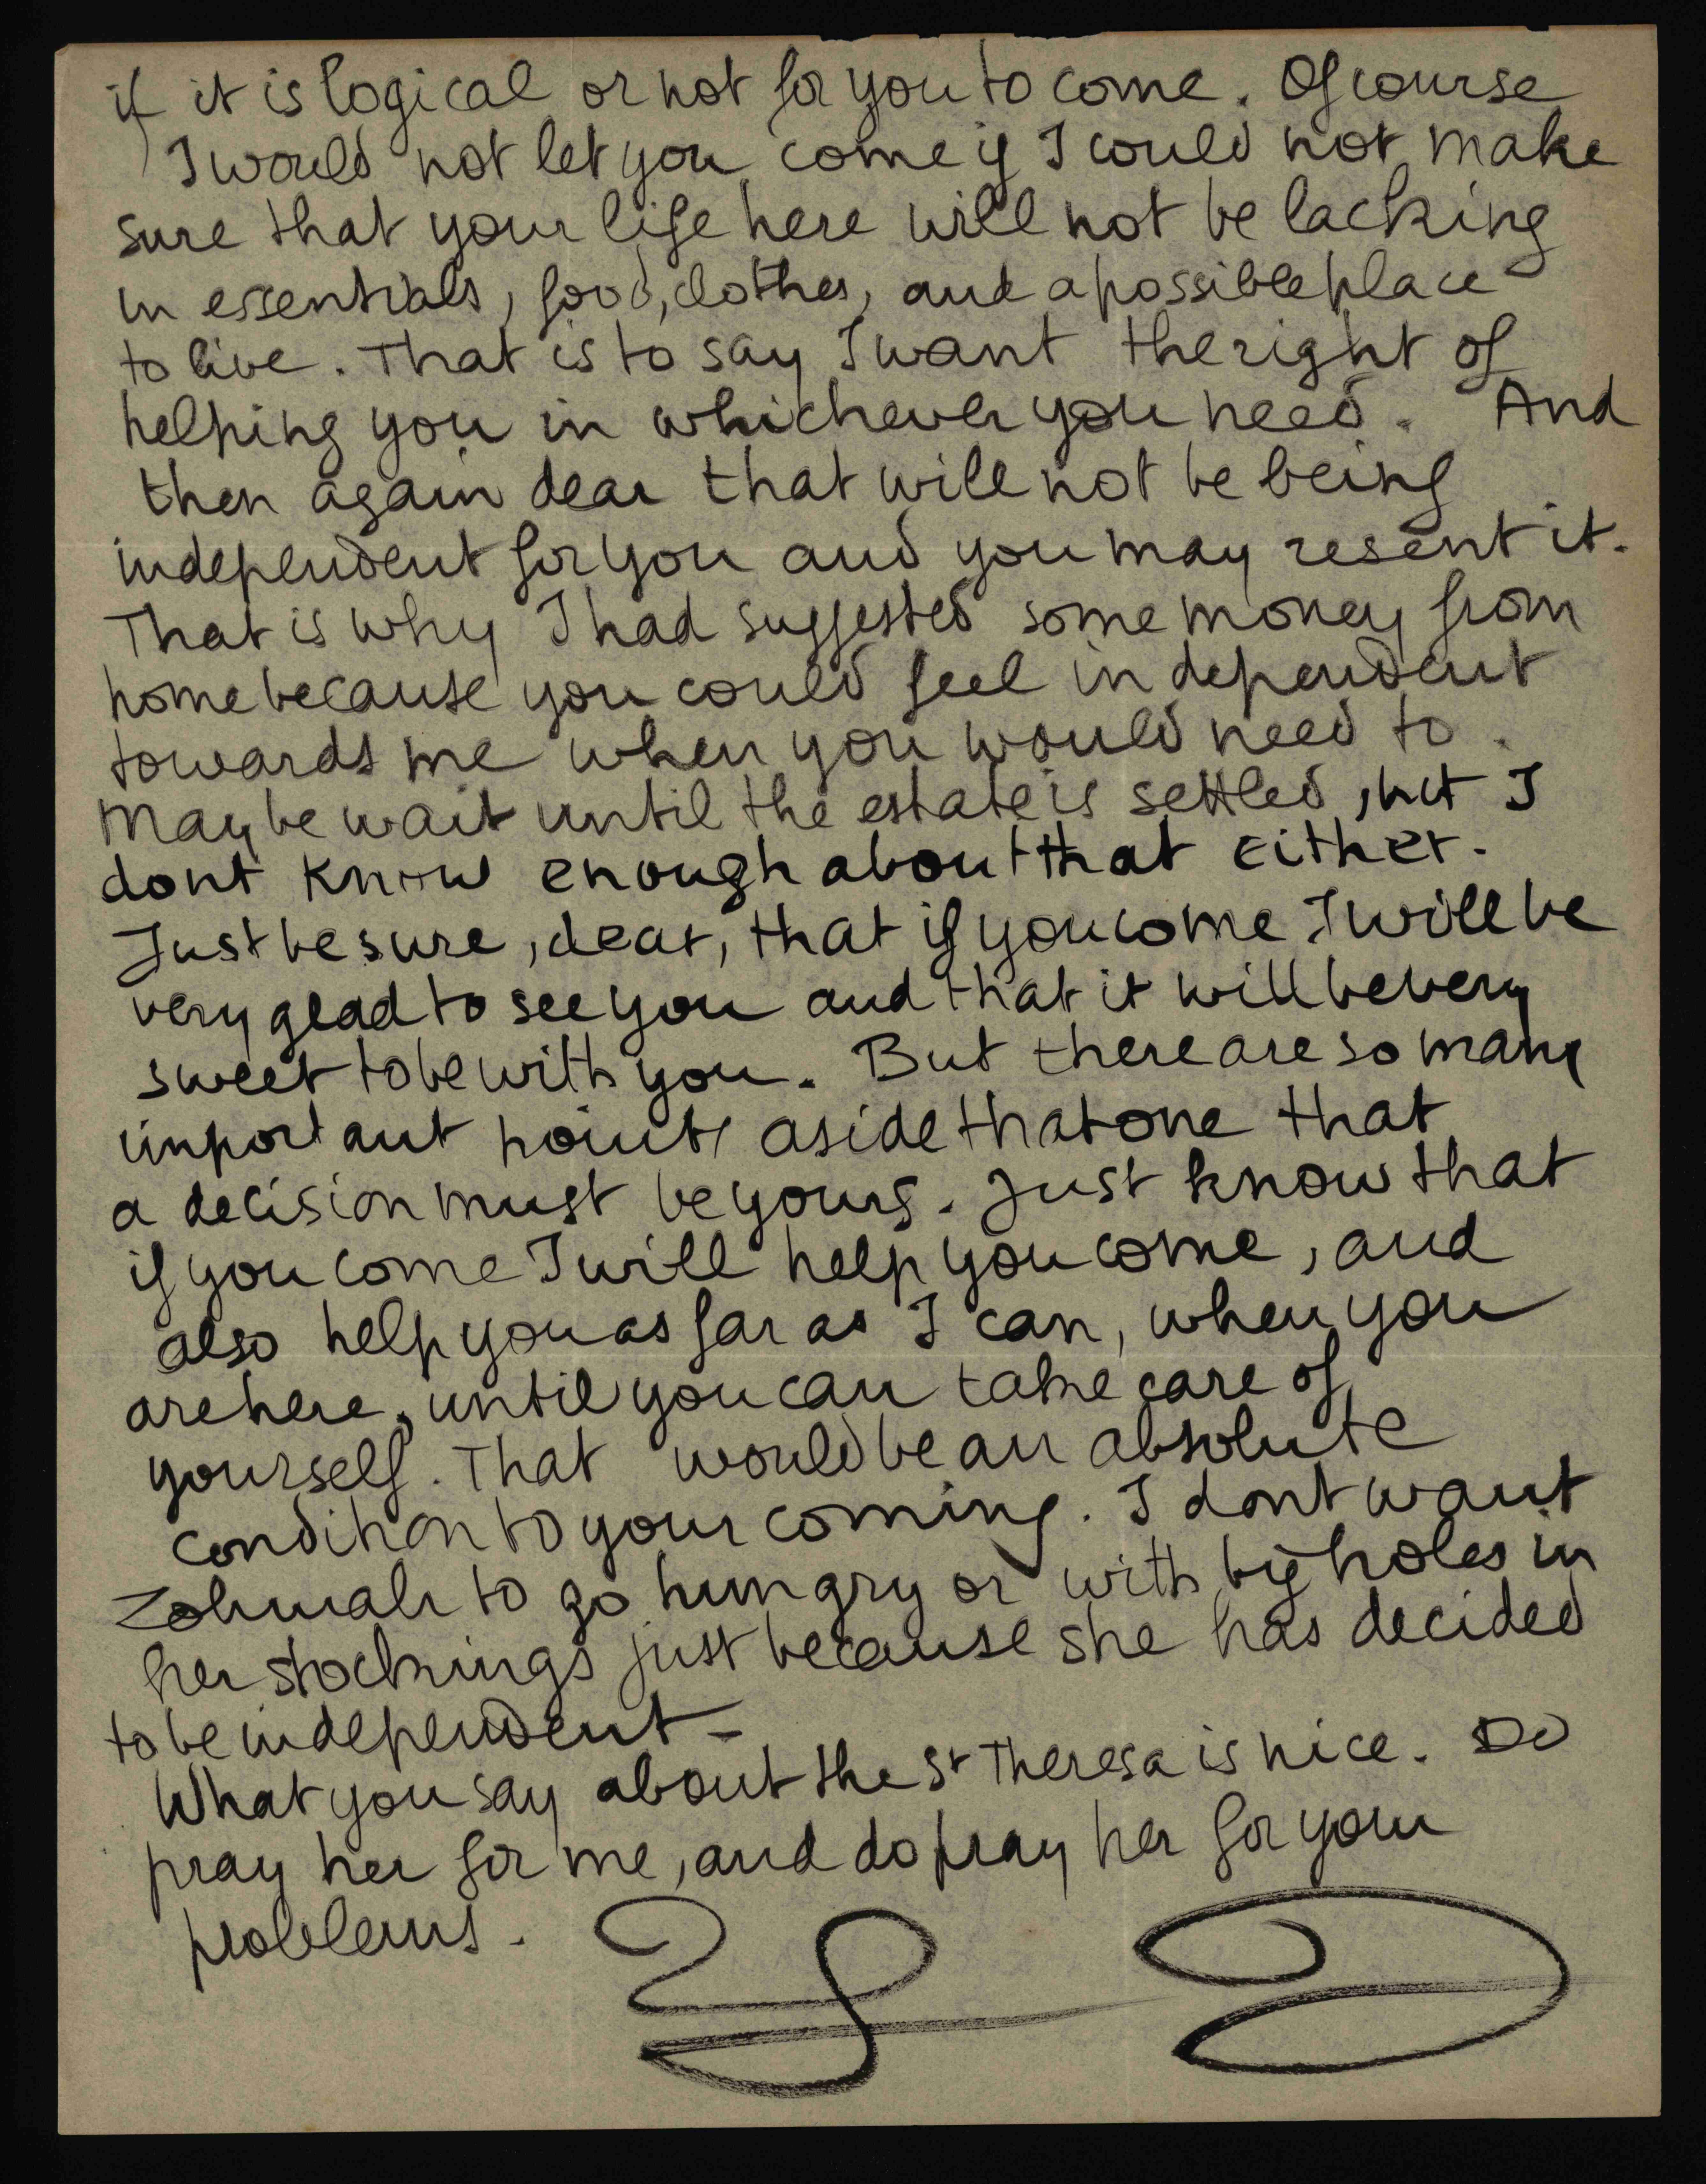 if it is logical or not for you to come. Of course
I would not let you come if I could not make
sure that your life here will not be lacking
in essentials, food, clothes, and a possible place
to live. That is to say I want the right of
helping you in whichever you need. And
then again dear that will not be being
independent for you and you may resent it.
That is why I had suggested some money from
home because you could feel independent
towards me when you would need to.
Maybe wait until the estate is settled, but I
dont know enough about that either.
Just be sure, dear, that if you come I will be
very glad to see you and that it will be very
sweet to be with you. But there are so many
important points aside that one that
a decision must be yours. Just know that
if you come I will help you come, and
also help you as far as I can, when you
are here, until you can take care of
yourself. That would be an absolute
condition to your coming. I dont want
Zohmah to go hungry or with big holes in
her stockings just because she has decided
to be independent -
What you say about the St Theresa is nice. Do
pray her for me, and do pray her for your
problems.